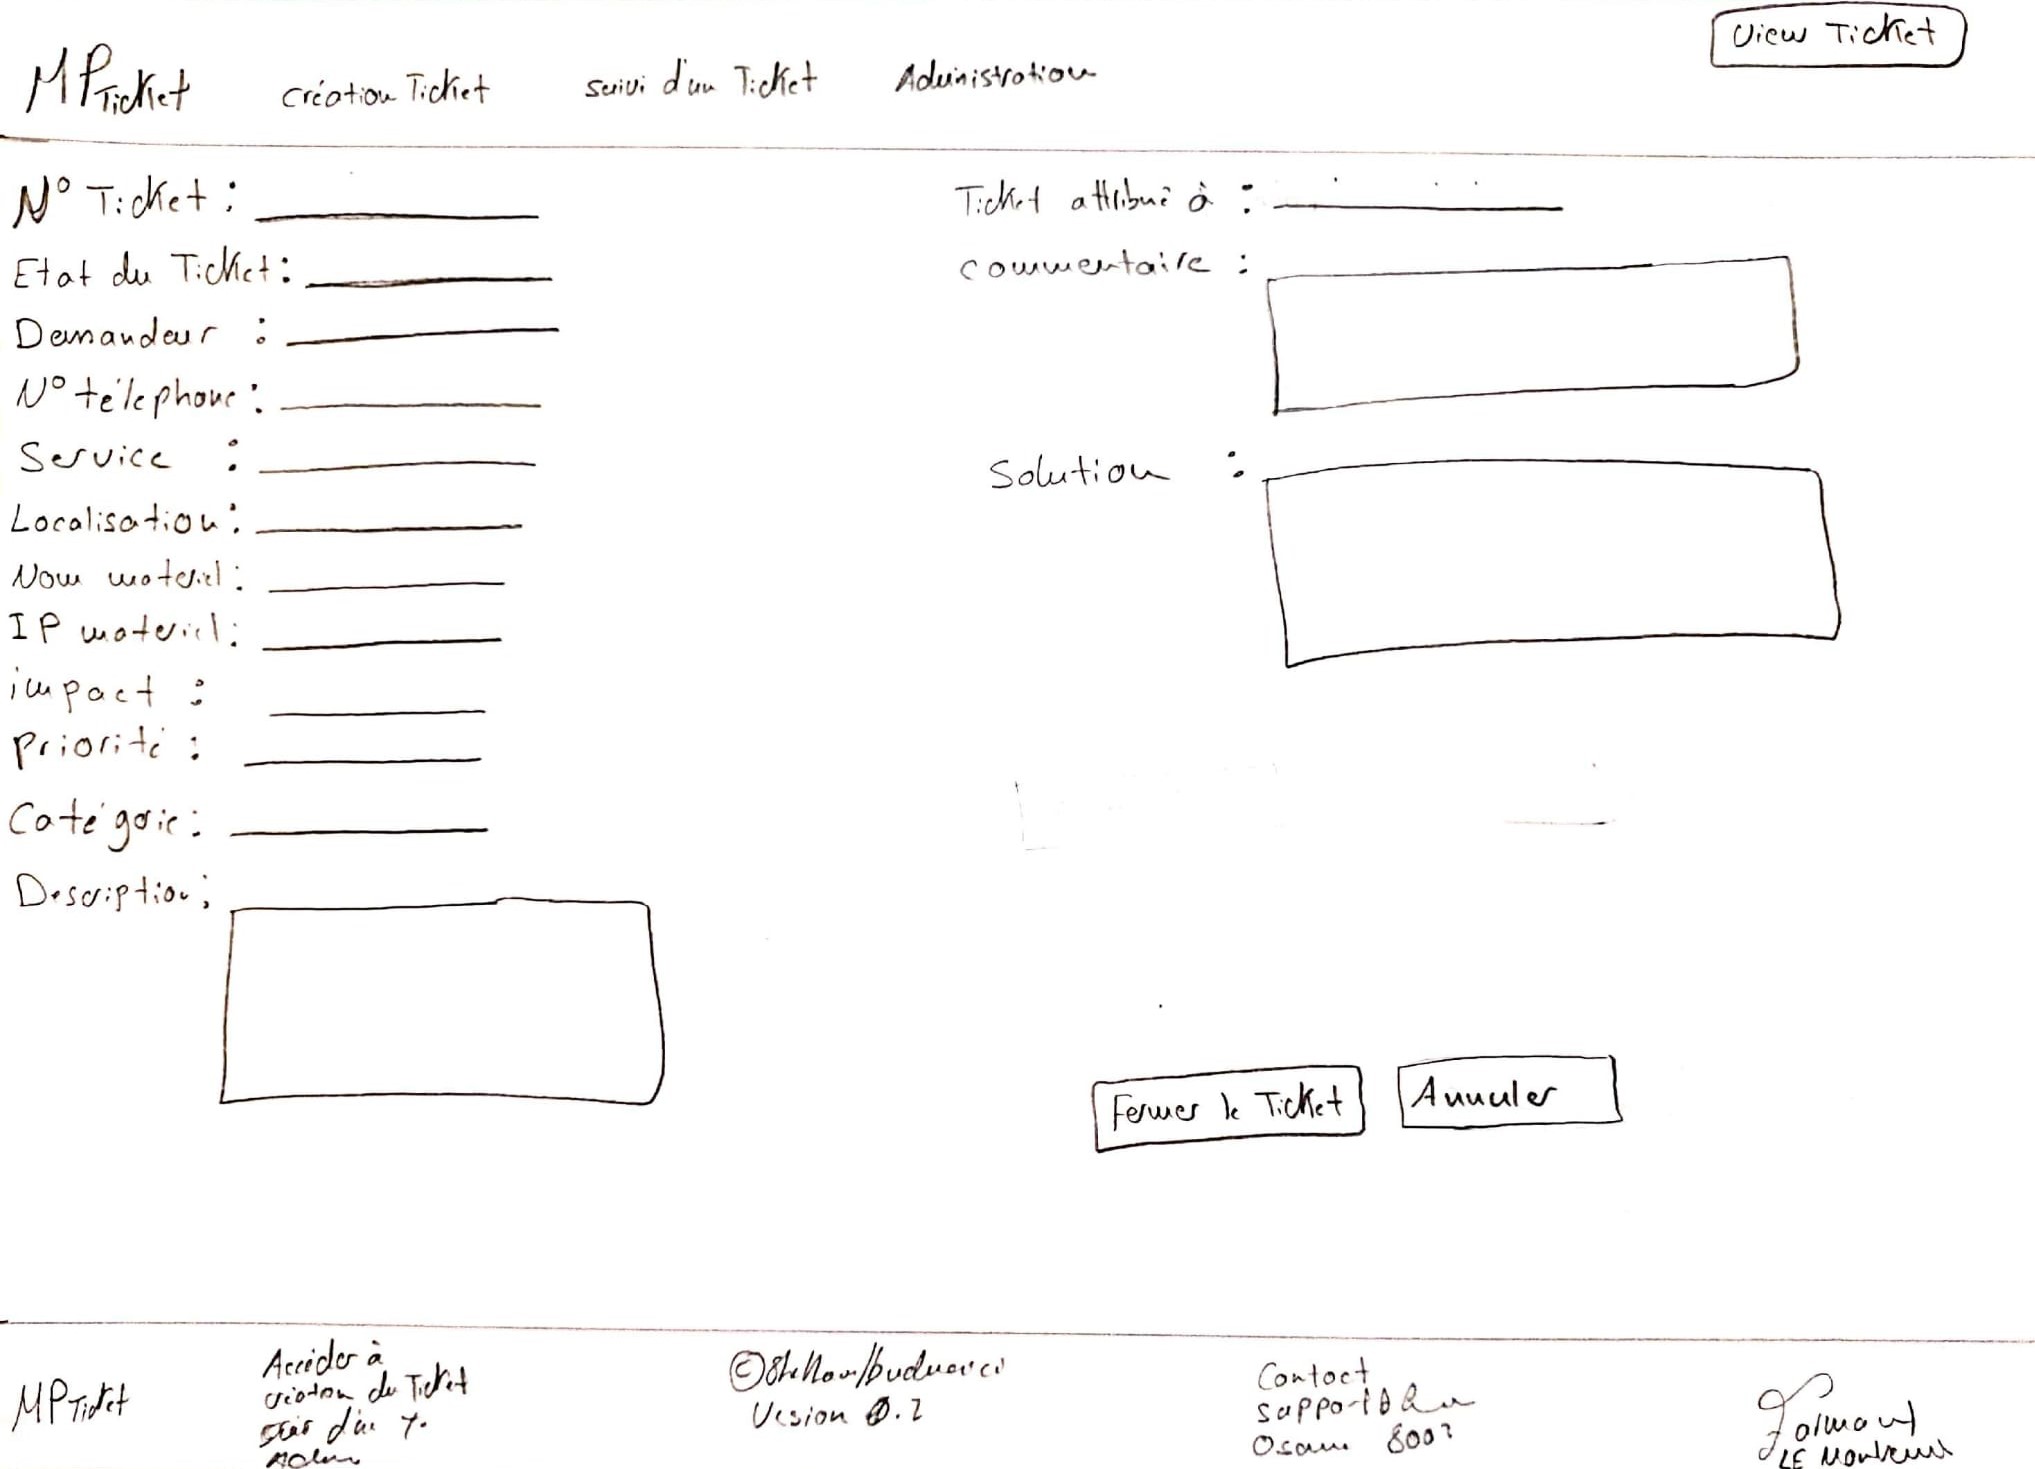 MPTicket
Création Ticket
suivi d'un Ticket
Administration
View Ticket
N° Ticket :
Etat du Ticket :
Demandeur :
N° téléphone :
Service :
Localisation :
Nom materiel :
IP materiel :
impact :
Priorité :
Catégorie :
Description :
Ticket attribué à :
Commentaire :
Solution :
Fermer le Ticket
Annuler
MPTicket
Accéder à
création du Ticket
d'un T.
©
Version 0.2
Contact
support